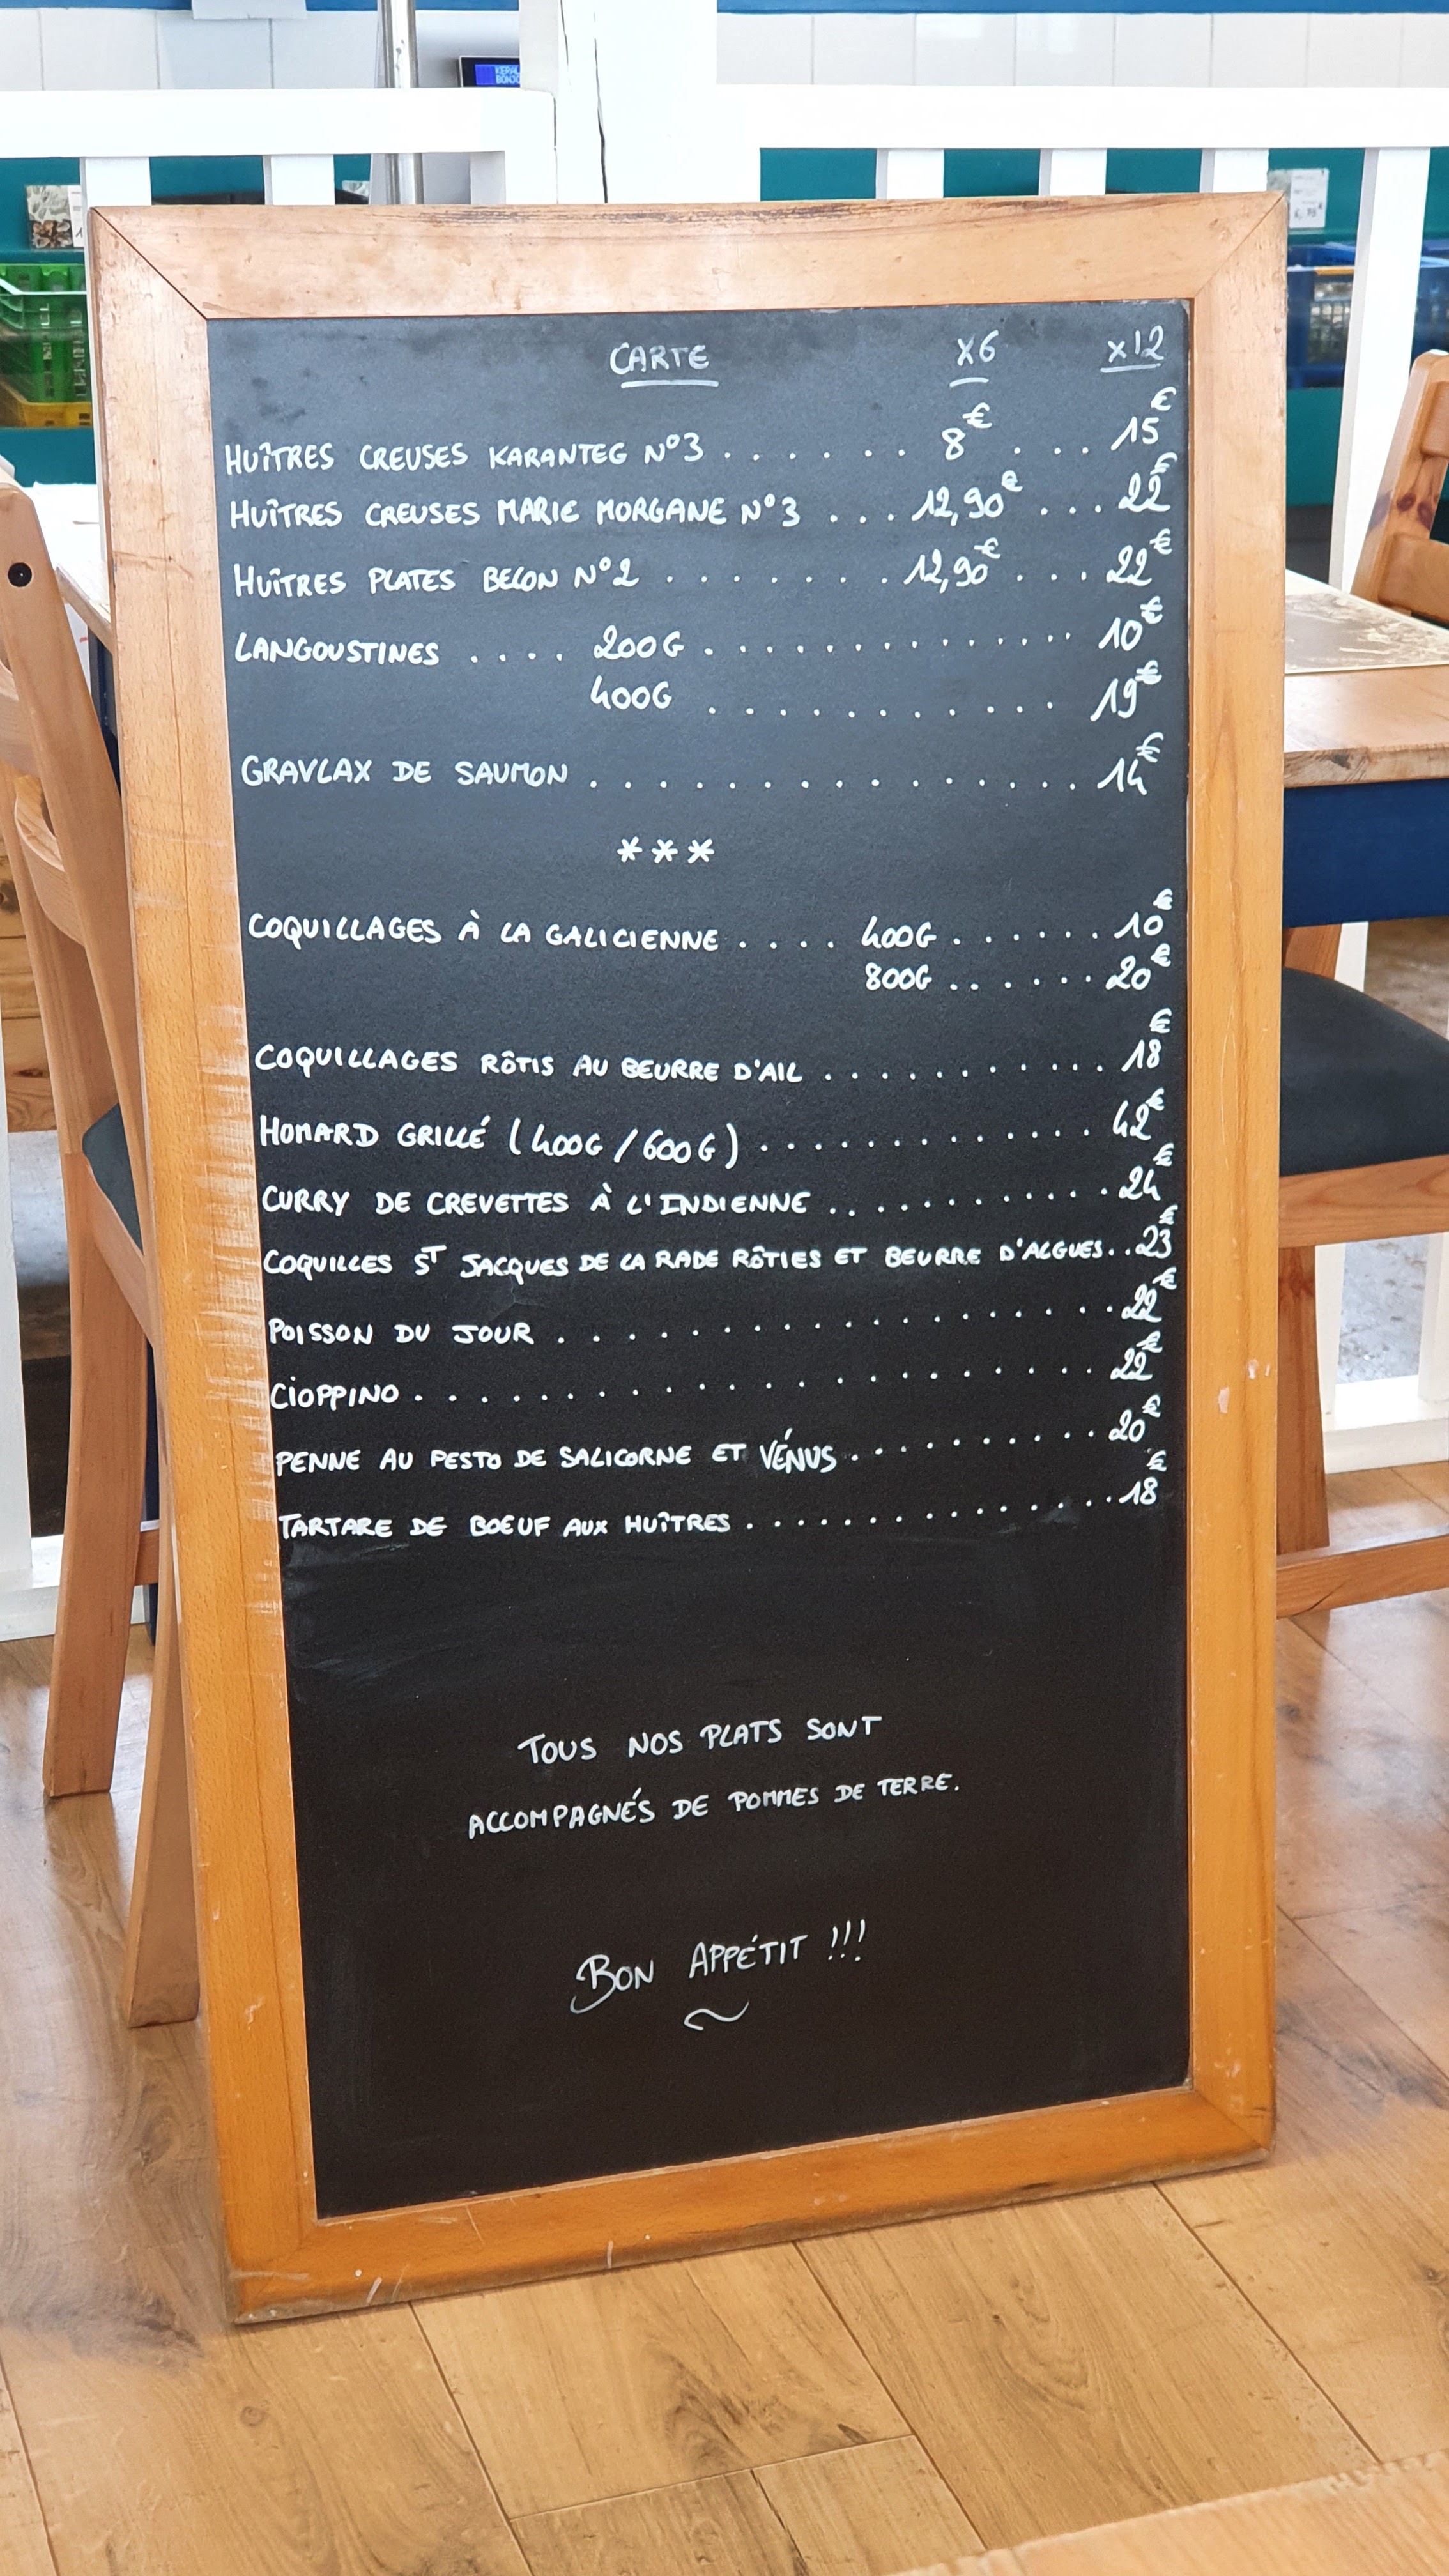 KERAL
BONJO
CARTE x6 x12
HUÎTRES CREUSES KARANTEG N°3 . . . . . . 8€ . . . 15€
HUÎTRES CREUSES MARIE MORGANE N°3 . . . 12,90€ . . . 22€
HUÎTRES PLATES BELON N°2 . . . . . . . 12,90€ . . . 22€
LANGOUSTINES . . . . 200G . . . . . . . . . . . . . 10€
400G . . . . . . . . . . . 19€
GRAVLAX DE SAUMON . . . . . . . . . . . . . . . 14€
***
COQUILLAGES À LA GALICIENNE . . . . 400G . . . . . . 10€
800G . . . . . . 20€
COQUILLAGES RÔTIS AU BEURRE D'AIL . . . . . . . . . . . 18€
HOMARD GRILLÉ (400G/600G) . . . . . . . . . . . . . 42€
CURRY DE CREVETTES À L'INDIENNE . . . . . . . . . . 24€
COQUILLES ST JACQUES DE LA RADE RÔTIES ET BEURRE D'ALGUES . . 23€
POISSON DU JOUR . . . . . . . . . . . . . . . . 22€
CIOPPINO . . . . . . . . . . . . . . . . . . . 22€
PENNE AU PESTO DE SALICORNE ET VÉNUS . . . . . . . . . . 20€
TARTARE DE BOEUF AUX HUÎTRES . . . . . . . . . . . . . . 18€
TOUS NOS PLATS SONT
ACCOMPAGNÉS DE POMMES DE TERRE.
BON APPÉTIT !!!